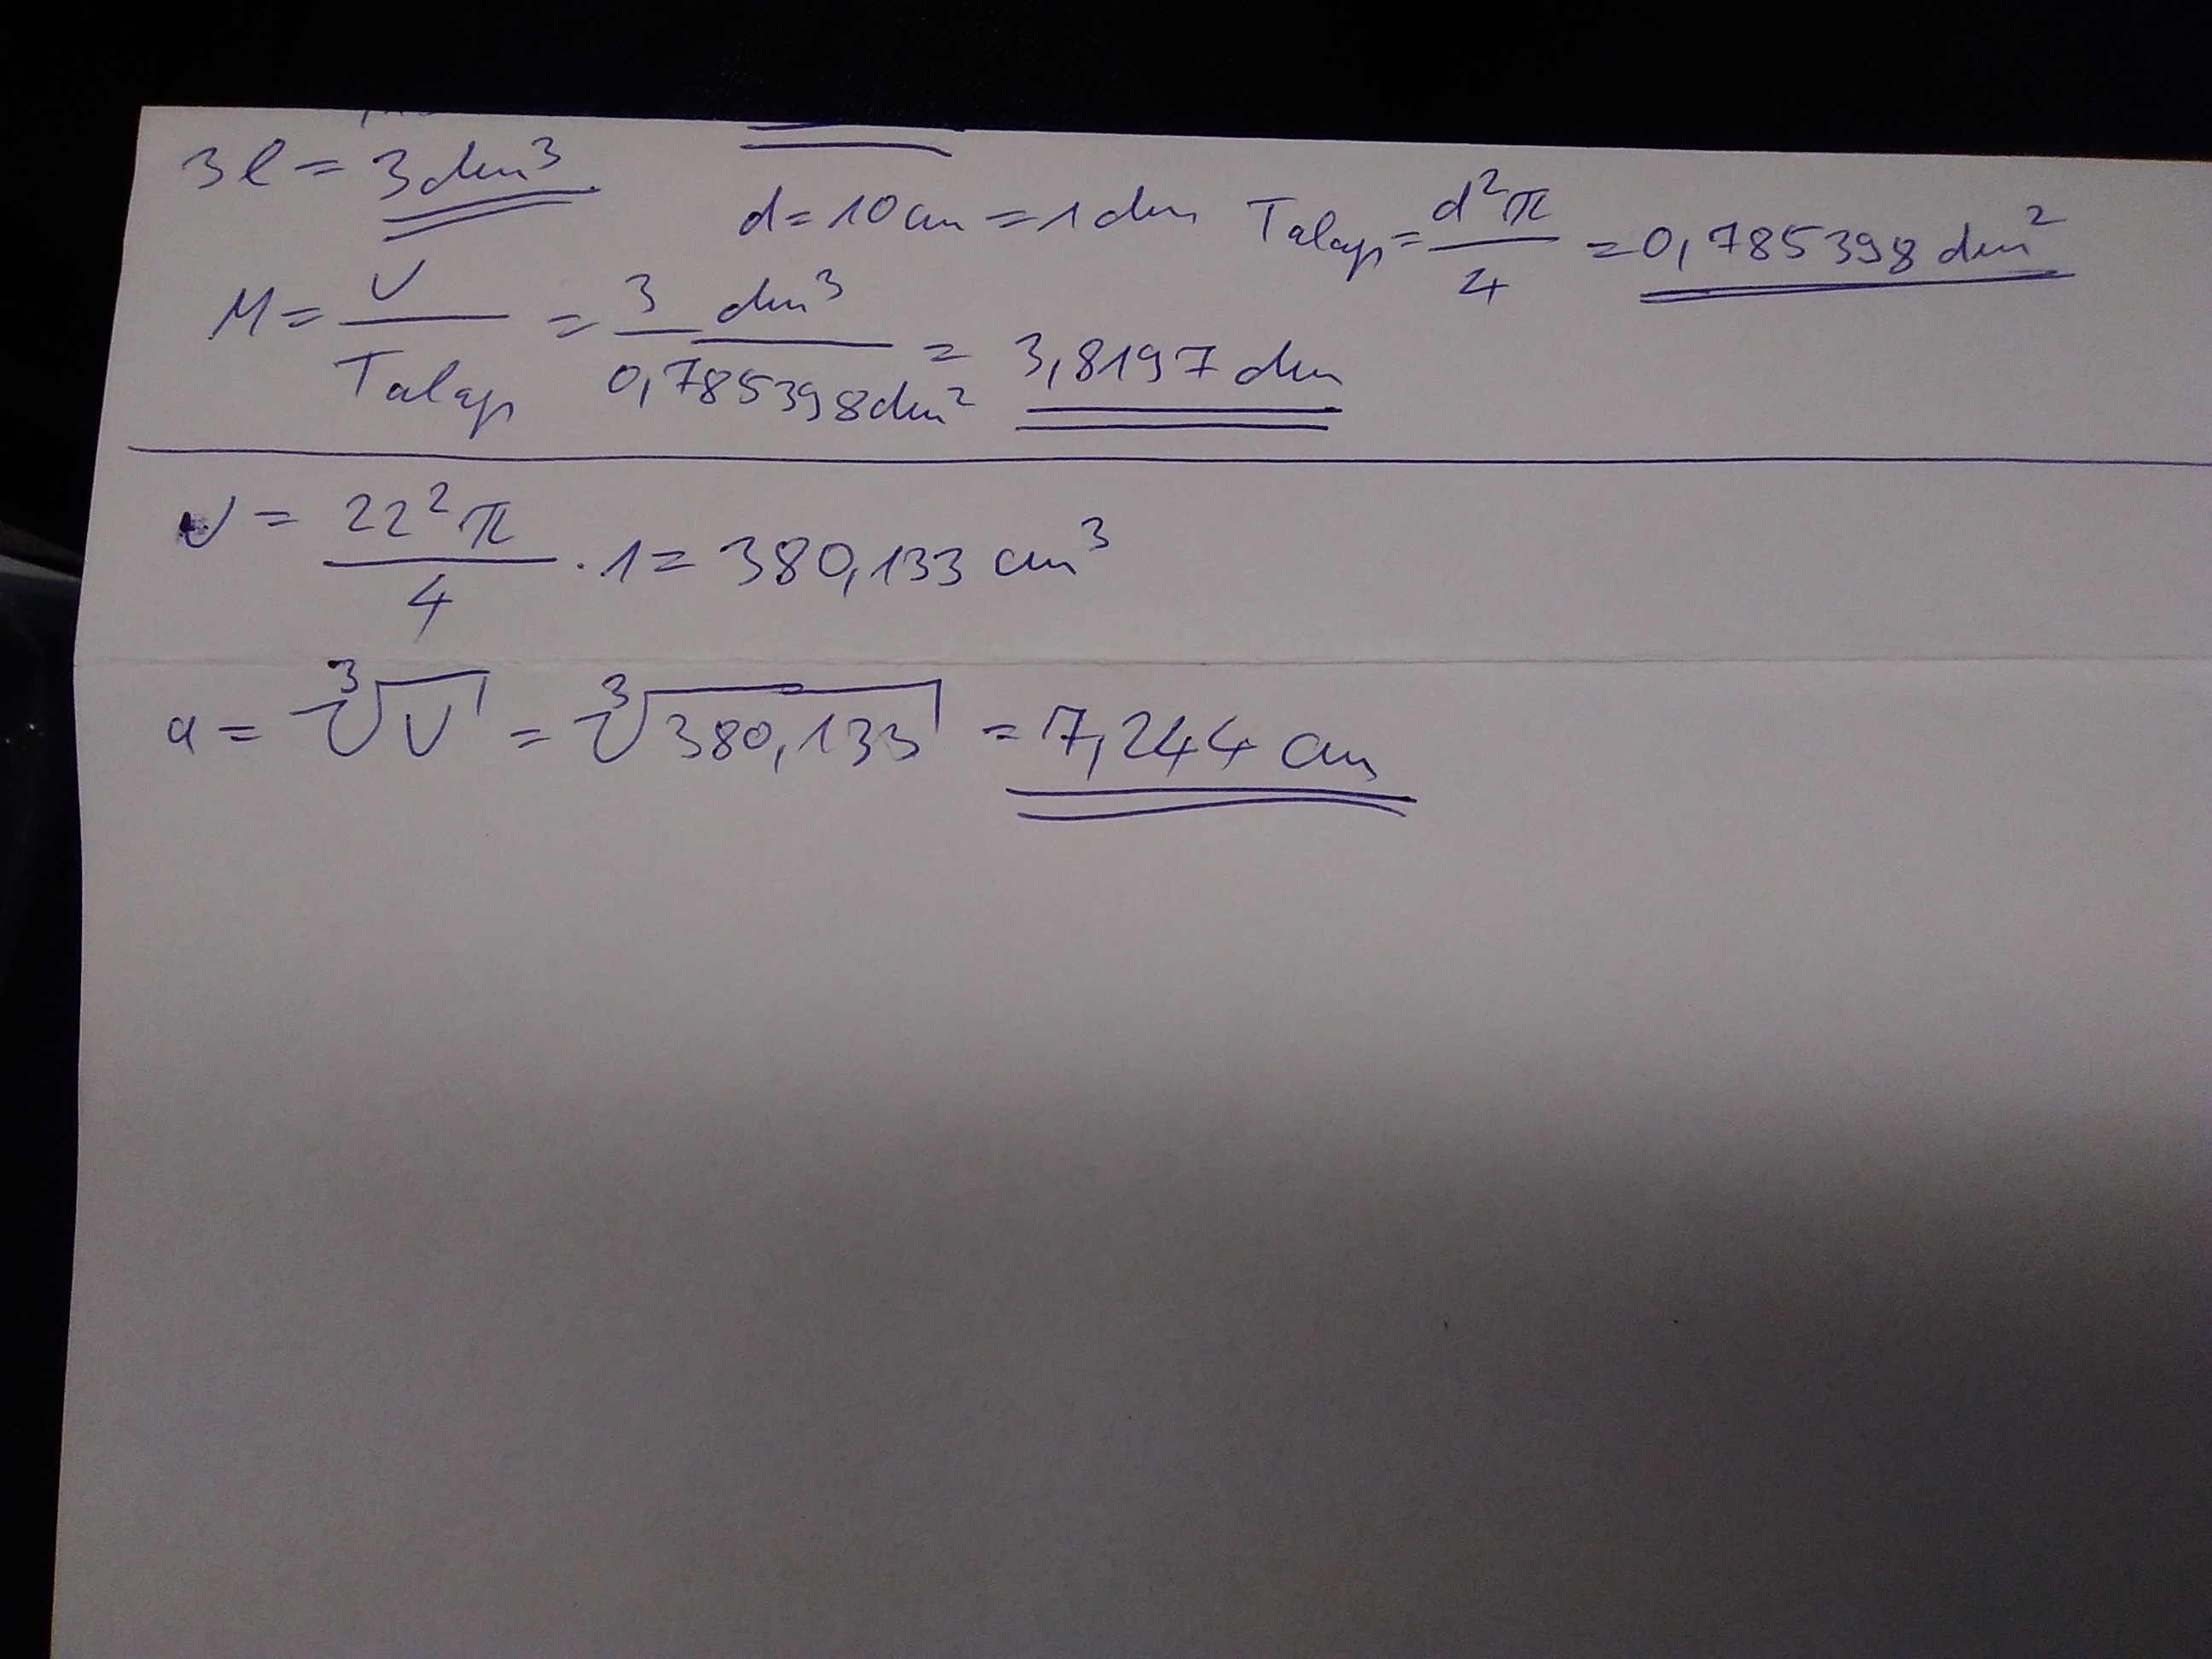 3l = 3dm³
d = 10cm = 1dm Talap = d²π/4 = 0,785398 dm²
M = V/Talap = 3 dm³/0,785398dm² = 3,8197 dm
V = 22²π/4 · 1 = 380,133 cm³
a = ³√V = ³√380,133 = 7,244 cm